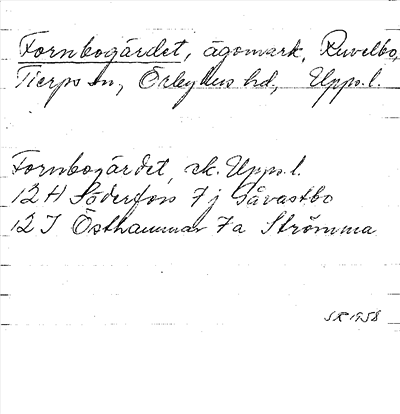 Fornbogärdet, ägomark, Ruvelbo,
Tierps sn, Örbyhus hd, Upps. l.
Fornbogärdet, ek. Upps. l.
12 H Söderfors 7 j Såvastbo
12 I Östhammar 7 a Strömma
SR 1958